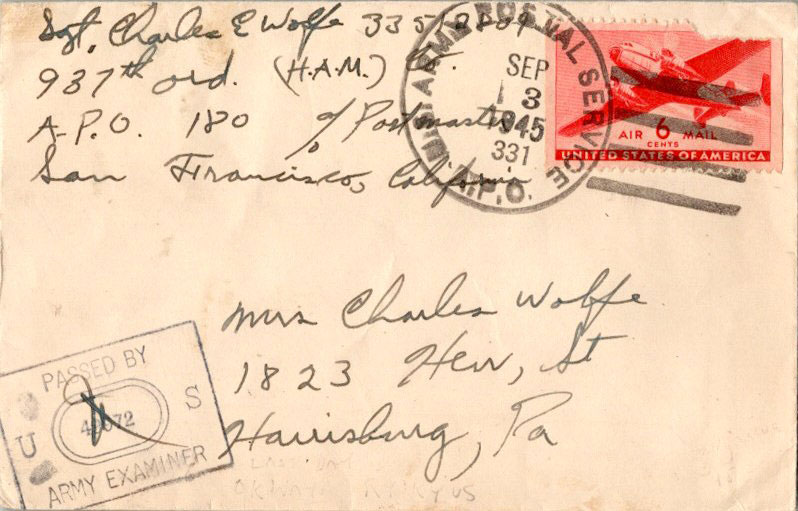 Sgt. Charles E Wolfe
937th Ord. (H.A.M.) Co.
A.P.O. 180 c/o Postmaster
San Francisco, California
U.S. ARMY POSTAL SERVICE
SEP
3
1945
331
A.P.O.
AIR 6 MAIL
CENTS
UNITED STATES OF AMERICA
Mrs Charles Wolfe
1823 Herr, St
Harrisburg, Pa
PASSED BY
U S
ARMY EXAMINER
LAST DAY